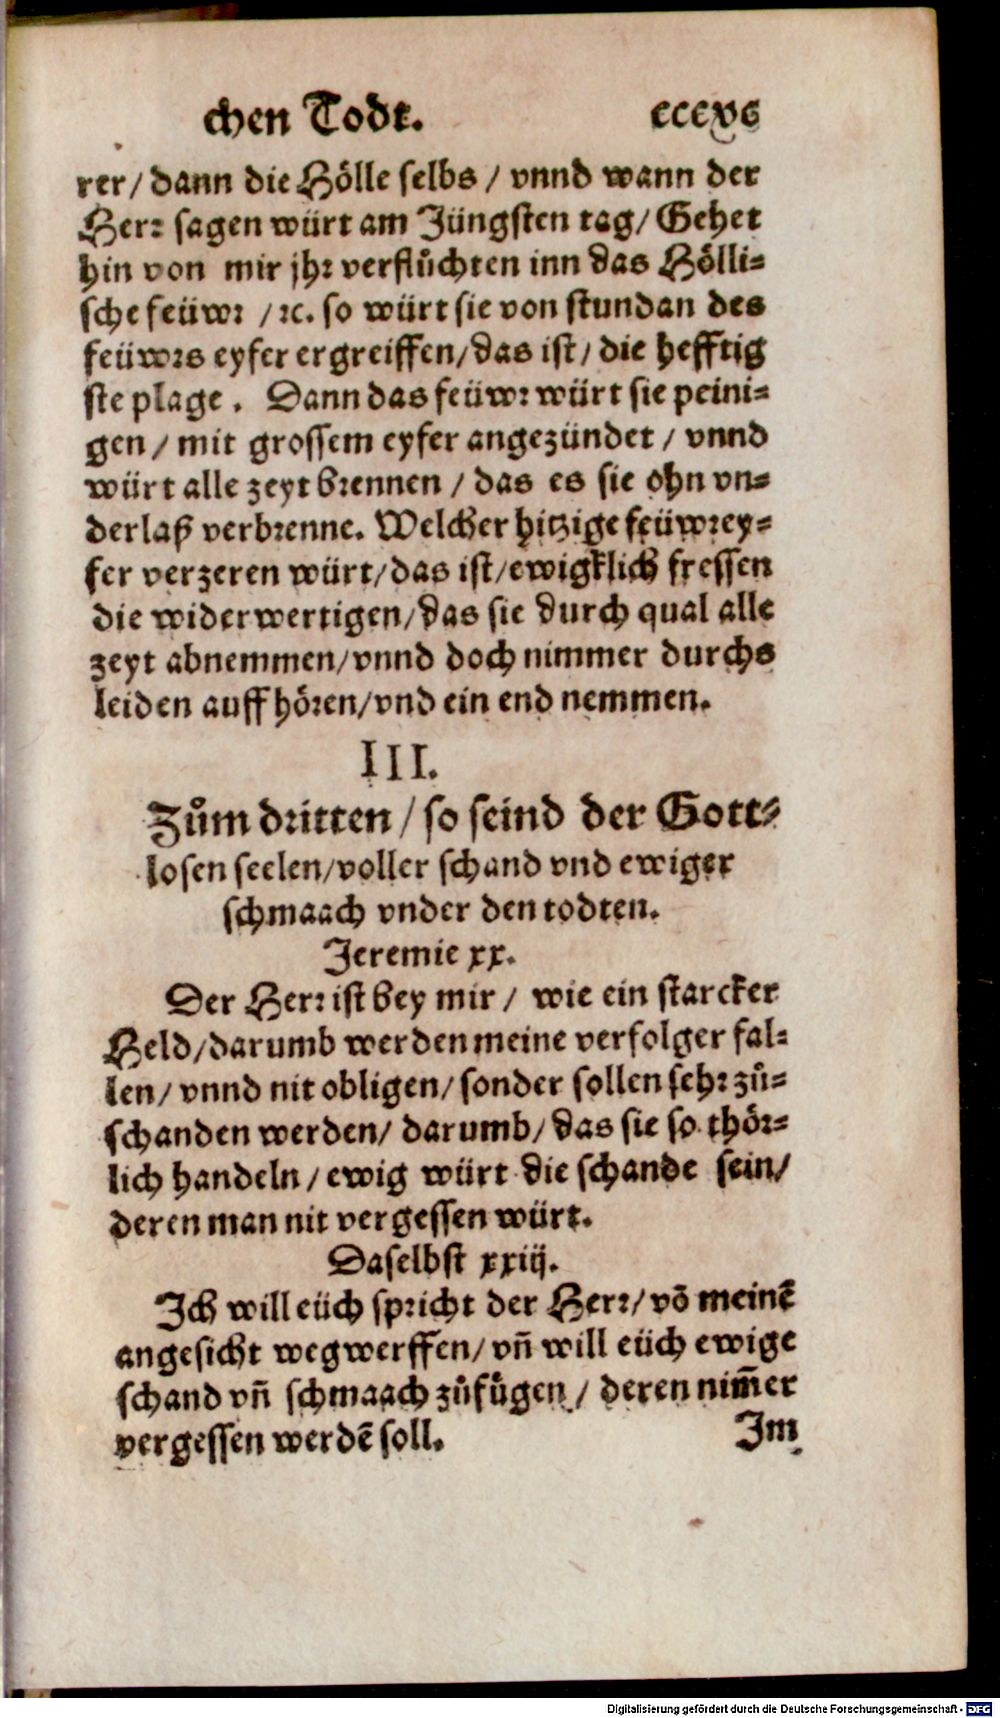 chen Todt. cccxc
rer/ dann die Hölle selbs / vnnd wann der
Herr sagen würt am Jüngsten tag/ Gehet
hin von mir jhr verflůchten inn das Hölli⸗
sche feüwr /ꝛc. so würt sie von stundan des
feüwrs eyfer ergreiffen/das ist/ die hefftig
ste plage. Dann das feüwr würt sie peini⸗
gen / mit grossem eyfer angezündet / vnnd
würt alle zeyt brennen / das es sie ohn vn⸗
derlaß verbrenne. Welcher hitzige feüwrey⸗
fer verzeren würt/das ist/ewigklich fressen
die widerwertigen/das sie durch qual alle
zeyt abnemmen/vnnd doch nimmer durchs
leiden auff hören/vnd ein end nemmen.
III.
Zům dritten / so seind der Gott⸗
losen seelen/voller schand vnd ewiger
schmaach vnder den todten.
Jeremie xx.
Der Herr ist bey mir / wie ein starcker
Held/darumb werden meine verfolger fal⸗
len/ vnnd nit obligen/ sonder sollen sehr zů⸗
schanden werden/ darumb/ das sie so thör⸗
lich handeln / ewig würt die schande sein/
deren man nit vergessen würt.
Daselbst xxiij.
Ich will eüch spricht der Herr/ võ meinẽ
angesicht wegwerffen/ vñ will eüch ewige
schand vñ schmaach zůfügen / deren nim̃er
vergessen werdẽ soll. Im
Digitalisierung gefördert durch die Deutsche Forschungsgemeinschaft - DFG